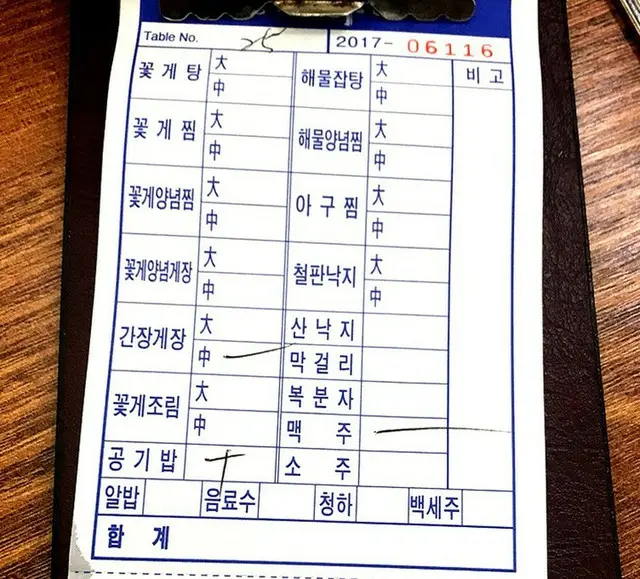 Table No. 25 2017- 06116
꽃게탕 大 해물잡탕 大 비고
中 中
꽃게찜 大 해물양념찜 大
中 中
꽃게양념찜 大 아구찜 大
中 中
꽃게양념게장 大 철판낙지 大
中 中
간장게장 大 산낙지
中 막걸리
꽃게조림 大 복분자
中 맥주
공기밥 소주
알밥 음료수 청하 백세주
합계